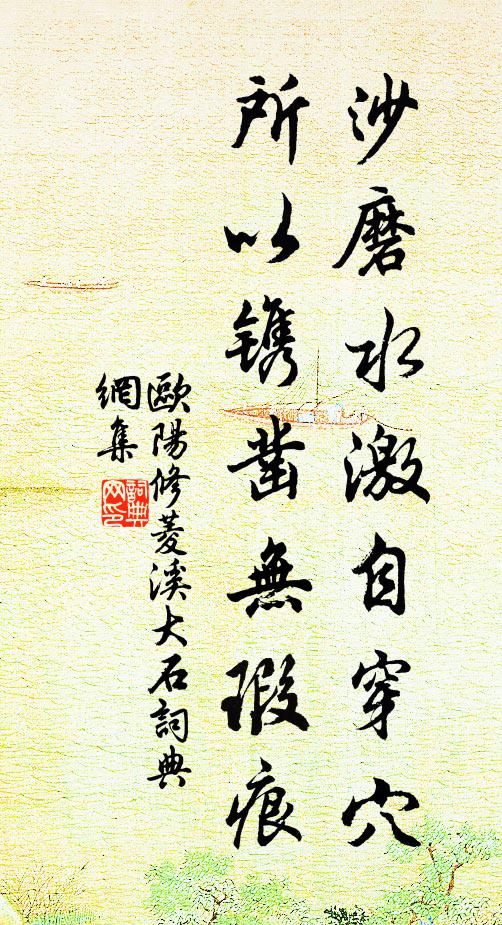 沙磨水激自穿穴
所以镌凿無瑕痕
歐陽修菱溪大石詞典
網集
詞典
网印